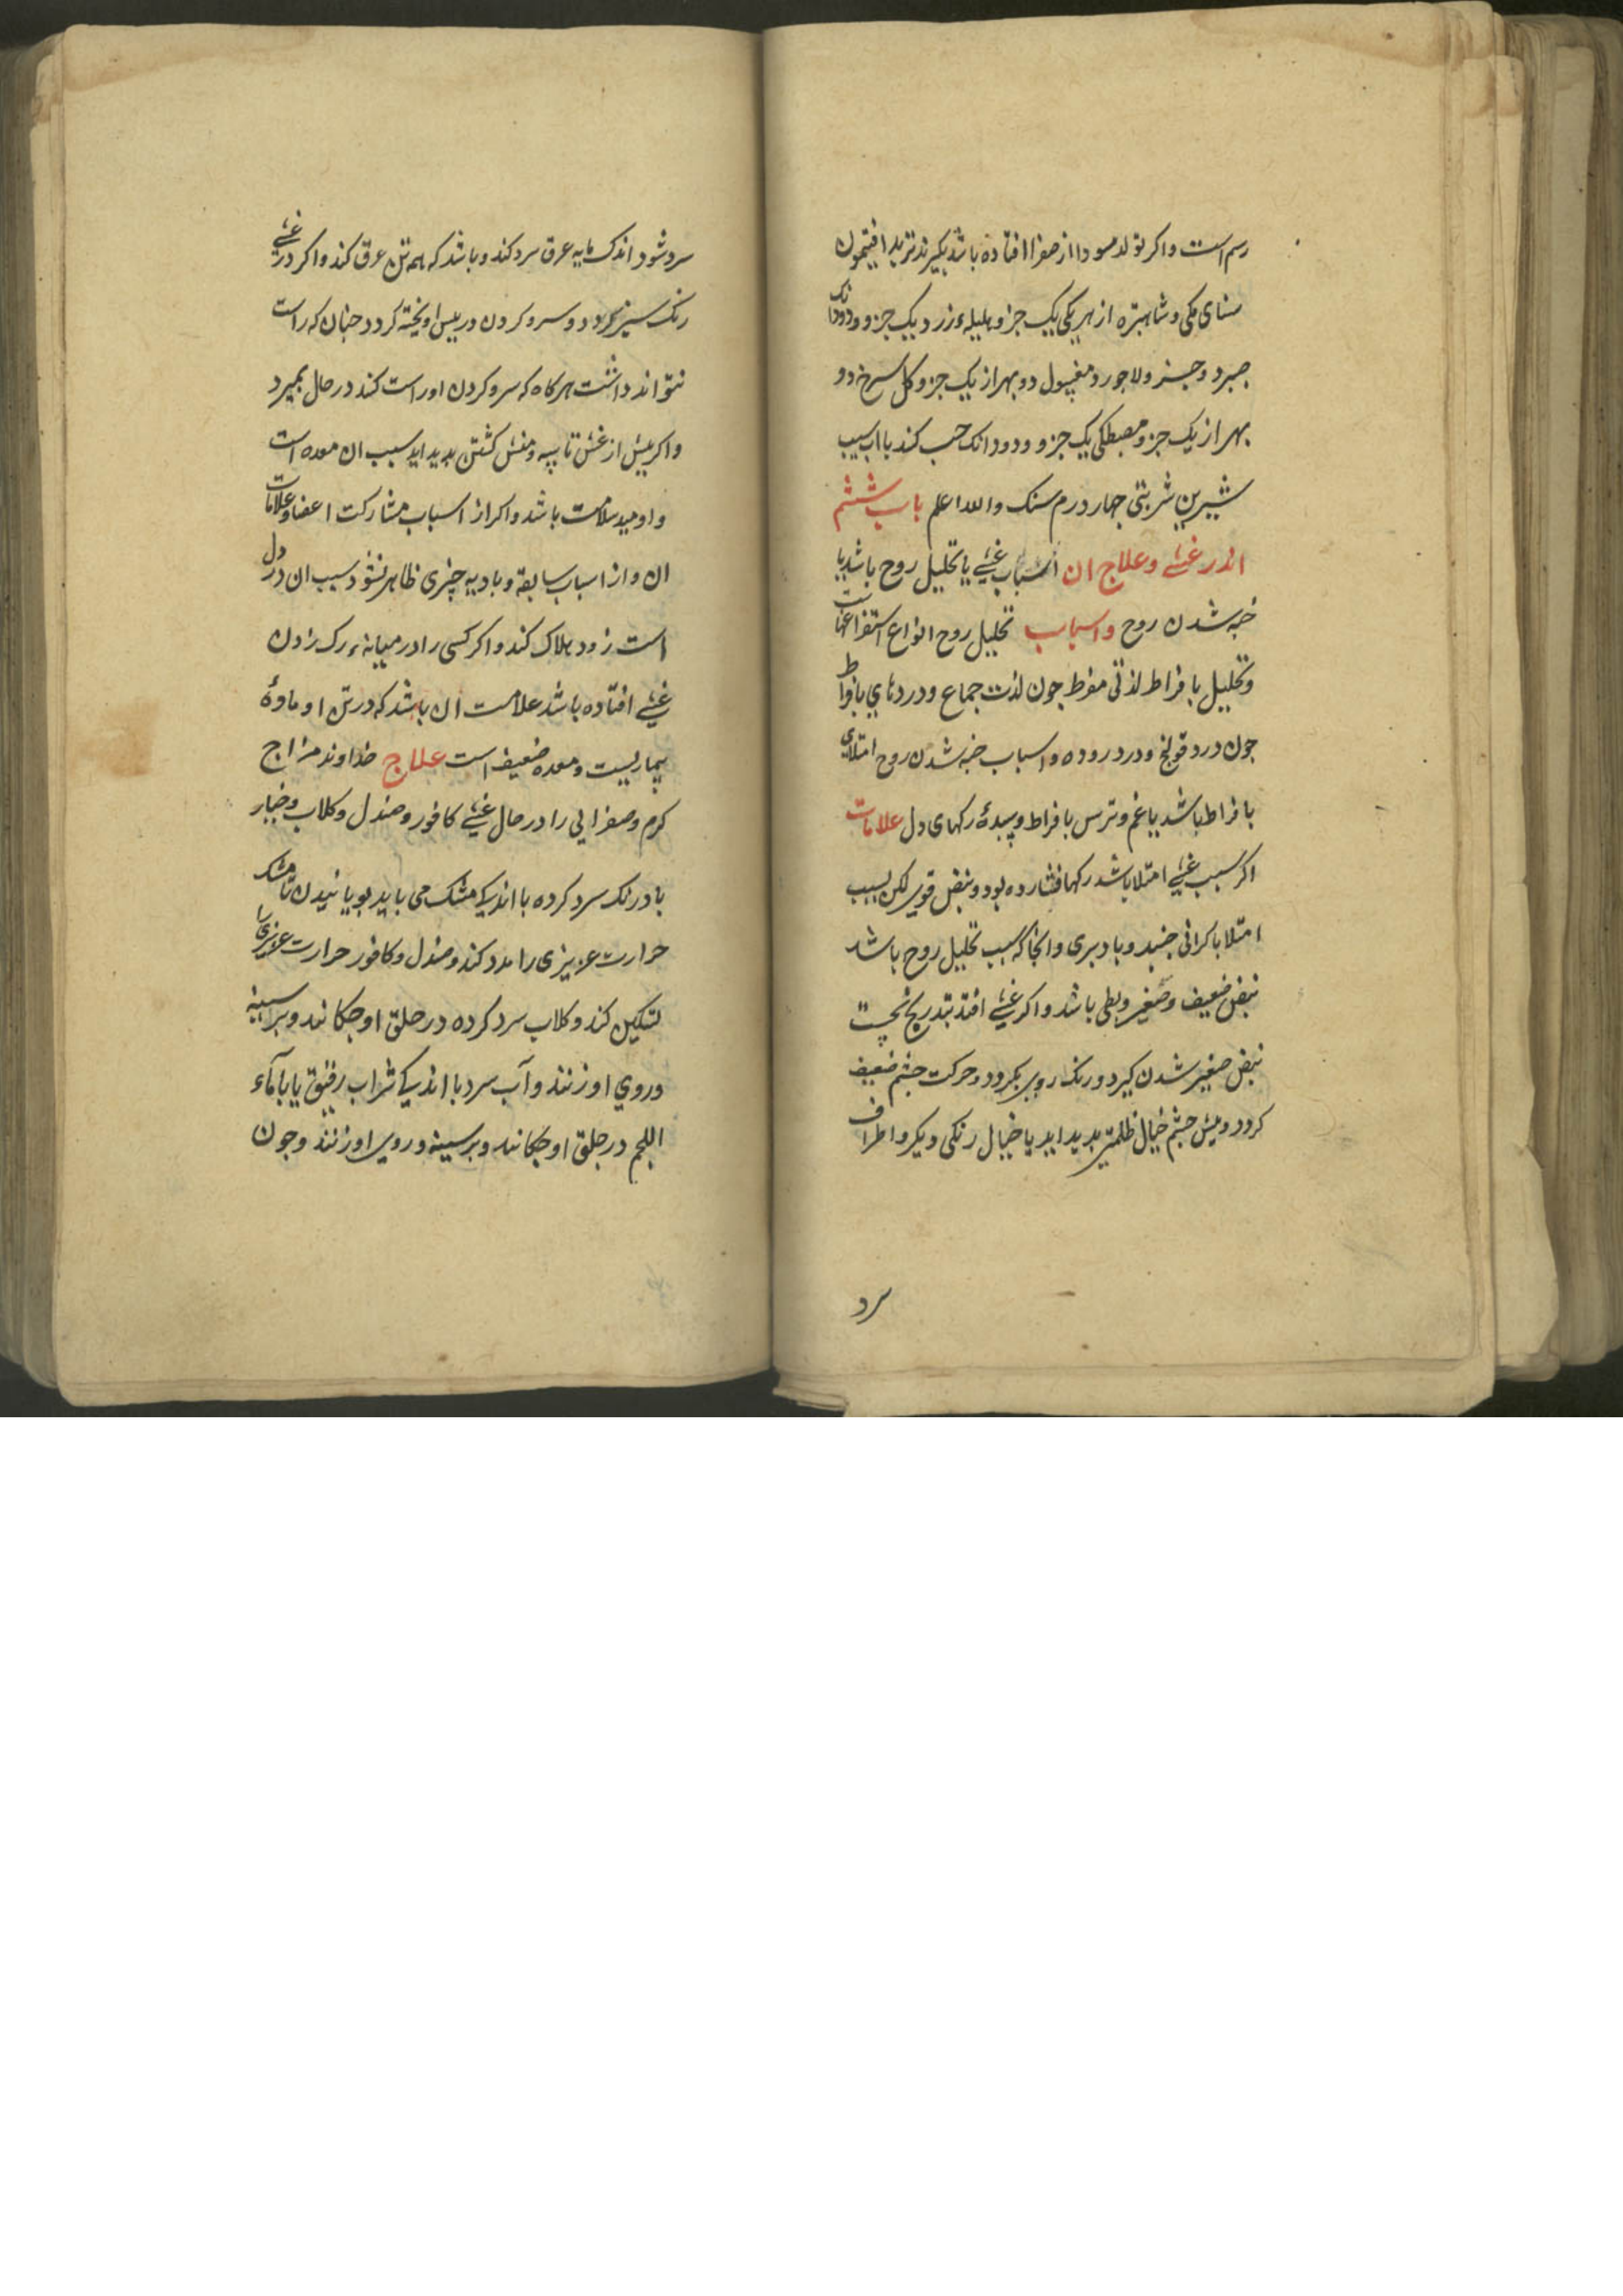 رسم است واکر تولد سودا از صفرا افتاده باشد بکیرند تربد افیتمون
سنای مکی و شاهتره از هر یکی یک جزو هلیلهٔ زرد یک جزو و دودانک
صبر دو جزو لاجورد مغسول دو بهر از یک جزو کل سرخ دو
بهر از یک جزو مصطکی یک جزو و دودانک حب کند با اب سیب
شیرین شربتی جهار درم سنک والله اعلم باب ششم
اندر غشی و علاج ان اسباب غشی یا تحلیل روح باشد یا
خبه شدن روح واسباب تحلیل روح انواع استفراغهاست
وتحلیل بافراط لذتی مفرط جون لذت جماع ودردهاي بافراط
جون درد قولنج ودرد روده واسباب خبه شدن روح امتلای
بافراط باشد یا غم وترس بافراط وسدهٔ رکهای دل علامات
اکر سبب غشی امتلا باشد رکها فشارده بود ونبض قوی لکن بسبب
امتلا باکرانی جنبد وبا دیری وانجا که سبب تحلیل روح باشد
نبض ضعیف وصغیر وبطی باشد واکر غشی افتد بتدریج نخست
نبض صغیر شدن کیرد ورنک روی بکردد وحرکت جشم ضعیف
کردد وپیش جشم خیال ظلمتی بدید اید یا خیال رنکی دیکر واطراف
سرد
سرد شود اندک مایه عرق سرد کند وباشد که همه تن عرق کند واکر در غشی
رنک سبز کردد وسر وکردن در پس اویخته کردد جنان که راست
نتواند داشت هرکاه که سر وکردن او راست کند درحال بمیرد
واکر پیش از غشی تاسه ومنش کشتن بدید اید سبب ان معده است
واومید سلامت باشد واکر از اسباب مشارکت اعضا وعلامات
ان واز اسباب سابقه وبادیه چیزی ظاهر نشود سبب ان در دل
است زود هلاک کند واکر کسی را در میانهٔ رک زدن
غشی افتاده باشد علامت ان باشد که در تن او مادهٔ
بیماریست ومعده ضعیف است علاج خداوند مزاج
کرم وصفرایی را در حال غشی کافور وصندل وکلاب وخیار
بادرنک سرد کرده با اندکی مشک می باید بویانیدن تا مشک
حرارت عزیزی را مدد کند وصندل وکافور حرارت غریزی را
تسکین کند وکلاب سرد کرده در حلق او جکانند وبر سینه
وروي او زنند وآب سرد با اندکی شراب رقیق یا با ماء
اللحم در حلق او جکانند وبر سینه وروی او زنند وجون